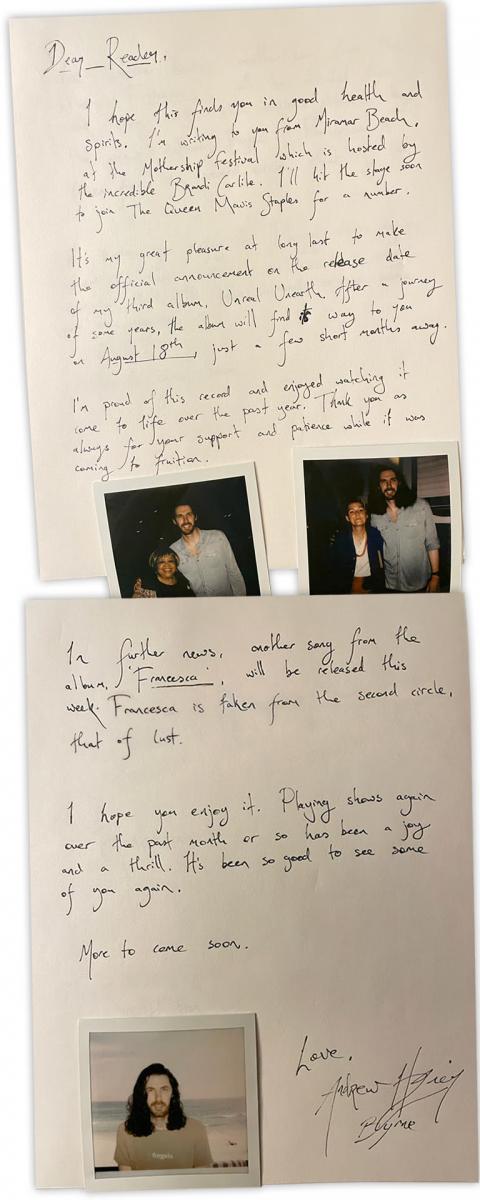 Dear Reader,
I hope this finds you in good health and
spirits. I'm writing to you from Miramar Beach,
at the Mothership festival which is hosted by
the incredible Brandi Carlile. I'll hit the stage soon
to join The Queen Mavis Staples for a number.
It's my great pleasure at long last to make
the official announcement on the release date
of my third album, Unreal Unearth. After a journey
of some years, the album will find its way to you
on August 18th, just a few short months away.
I'm proud of this record and enjoyed watching it
come to life over the past year. Thank you as
always for your support and patience while it was
coming to fruition.
In further news, another song from the
album, 'Francesca', will be released this
week. Francesca is taken from the second circle,
that of lust.
I hope you enjoy it. Playing shows again
over the past month or so has been a joy
and a thrill. It's been so good to see some
of you again.
More to come soon.
Love,
Andrew Hozier
Byrne